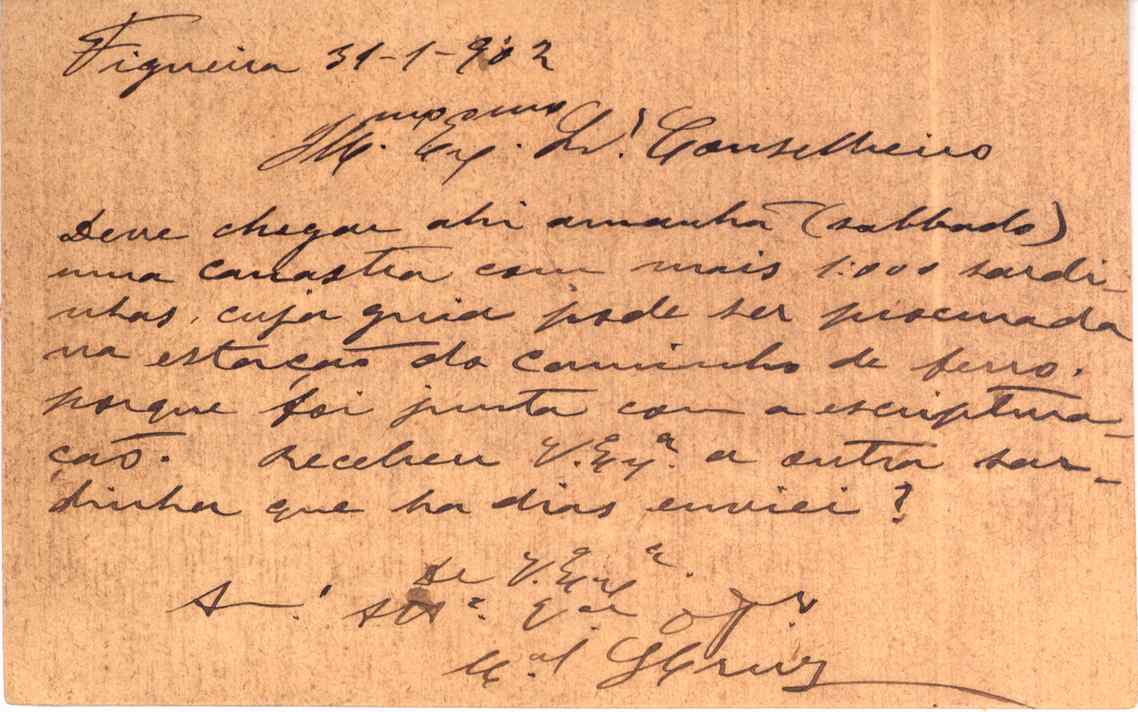 Figueira 31-1-902
Illmo. Exmo. Sr. Conselheiro
Deve chegar ahi amanhã (sabbado)
uma canastra com mais 1:000 sardi-
nhas, cuja guia pode ser procurada
na estação do caminho de ferro.
porque foi junta com a escriptura-
ção. Recebeu V. Exª. a outra sar-
dinha que ha dias enviei?
De V. Exª.